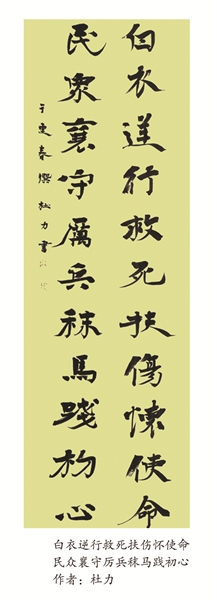 白衣逆行救死扶傷懷使命
民眾襄守厲兵秣馬踐初心
于更春撰 杜力書
白衣逆行救死扶伤怀使命
民众襄守厉兵秣马践初心
作者：杜力